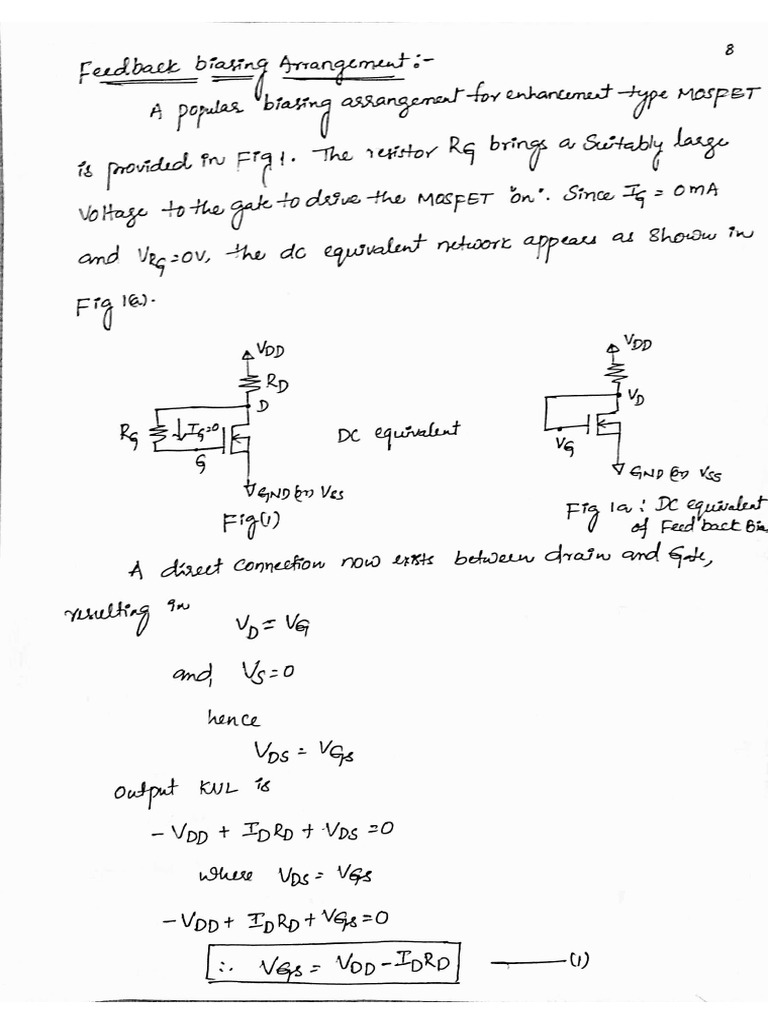 8
Feedback biasing Arrangement:-
A popular biasing arrangement for enhancement-type MOSFET
is provided in Fig 1. The resistor RG brings a suitably large
voltage to the gate to drive the MOSFET "on". Since IG = 0 mA
and VRG = 0V, the dc equivalent network appears as shown in
Fig 1(a).
VDD
RD
D
RG
IG=0
G
GND (or) VSS
Fig(1)
DC equivalent
VDD
VD
VG
GND (or) VSS
Fig 1a : DC equivalent
of Feed back Bia
A direct connection now exists between drain and Gate,
resulting in
VD = VG
and, VS = 0
hence
VDS = VGS
Output KVL is
- VDD + ID RD + VDS = 0
where VDS = VGS
- VDD + ID RD + VGS = 0
∴ VGS = VDD - ID RD ——— (1)